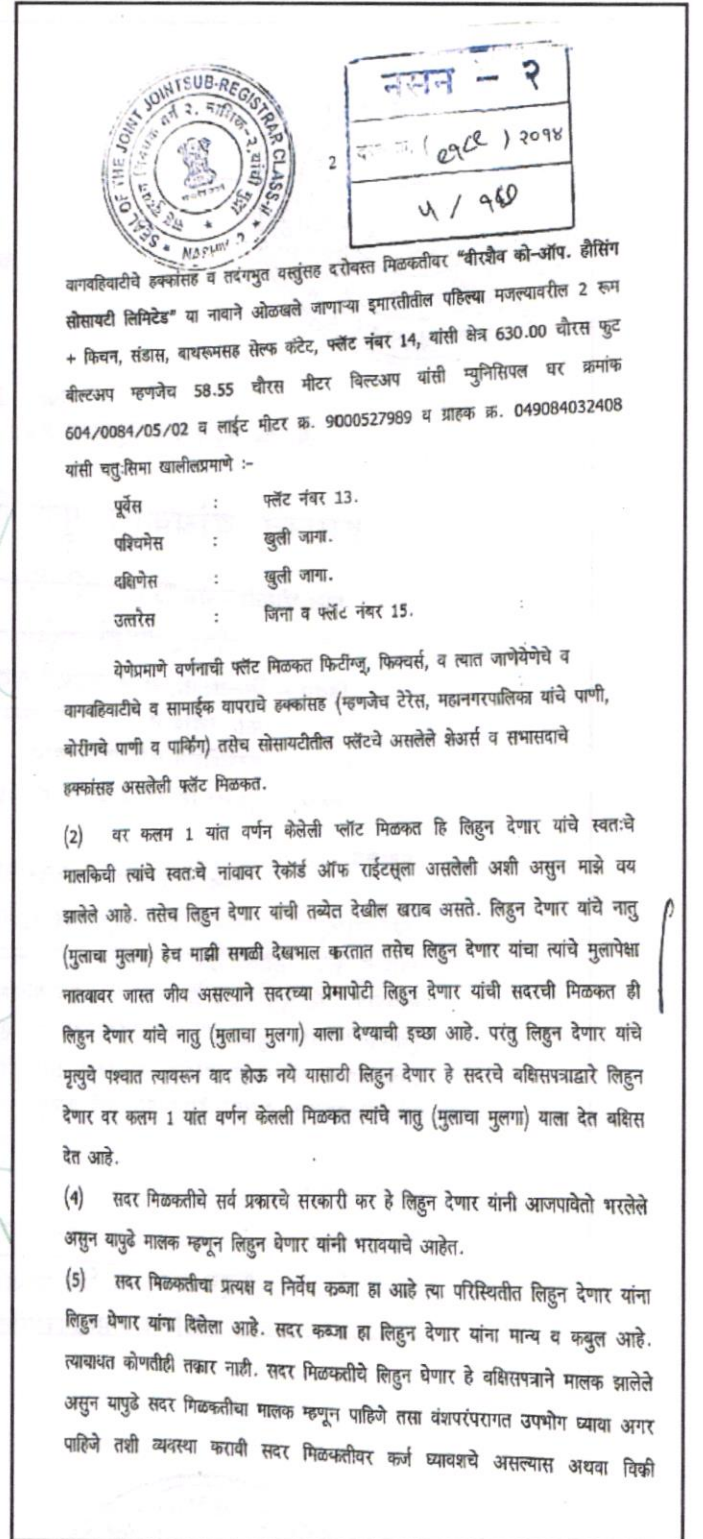 SEAL OF THE JOINT JOINTSUB-REGISTRAR CLASS-II
नसन - २
2
( ) २०१४
५ /
वागवहिवाटीचे हक्कांसह व तदंगभुत वस्तुंसह दरोबस्त मिळकतीवर "वीरशैव को-ऑप. हौसिंग
सोसायटी लिमिटेड" या नावाने ओळखले जाणाऱ्या इमारतीतील पहिल्या मजल्यावरील 2 रूम
+ किचन, संडास, बाथरूमसह सेल्फ कंटेट, फ्लॅट नंबर 14, यांसी क्षेत्र 630.00 चौरस फुट
बील्टअप म्हणजेच 58.55 चौरस मीटर बिल्टअप यांसी म्युनिसिपल घर क्रमांक
604/0084/05/02 व लाईट मीटर क्र. 9000527989 व ग्राहक क्र. 049084032408
यांसी चतुःसिमा खालीलप्रमाणे :-
पूर्वेस : फ्लॅट नंबर 13.
पश्चिमेस : खुली जागा.
दक्षिणेस : खुली जागा.
उत्तरेस : जिना व फ्लॅट नंबर 15.
येणेप्रमाणे वर्णनाची फ्लॅट मिळकत फिटींग्ज्, फिक्चर्स, व त्यात जाणेयेणेचे व
वागवहिवाटीचे व सामाईक वापराचे हक्कांसह (म्हणजेच टेरेस, महानगरपालिका यांचे पाणी,
बोरींगचे पाणी व पार्किंग) तसेच सोसायटीतील फ्लॅटचे असलेले शेअर्स व सभासदाचे
हक्कांसह असलेली फ्लॅट मिळकत.
(2) वर कलम 1 यांत वर्णन केलेली प्लॉट मिळकत हि लिहुन देणार यांचे स्वतःचे
मालकिची त्यांचे स्वतःचे नांवावर रेकॉर्ड ऑफ राईटस्ला असलेली अशी असुन माझे वय
झालेले आहे. तसेच लिहुन देणार यांची तब्येत देखील खराब असते. लिहुन देणार यांचे नातु
(मुलाचा मुलगा) हेच माझी सगळी देखभाल करतात तसेच लिहुन देणार यांचा त्यांचे मुलापेक्षा
नातवावर जास्त जीव असल्याने सदरच्या प्रेमापोटी लिहुन देणार यांची सदरची मिळकत ही
लिहुन देणार यांचे नातु (मुलाचा मुलगा) याला देण्याची इच्छा आहे. परंतु लिहुन देणार यांचे
मृत्युचे पश्चात त्यावरून वाद होऊ नये यासाठी लिहुन देणार हे सदरचे बक्षिसपत्राद्वारे लिहुन
देणार वर कलम 1 यांत वर्णन केलली मिळकत त्यांचे नातु (मुलाचा मुलगा) याला देत बक्षिस
देत आहे.
(4) सदर मिळकतीचे सर्व प्रकारचे सरकारी कर हे लिहुन देणार यांनी आजपावेतो भरलेले
असुन यापुढे मालक म्हणून लिहुन घेणार यांनी भरावयाचे आहेत.
(5) सदर मिळकतीचा प्रत्यक्ष व निर्वेध कब्जा हा आहे त्या परिस्थितीत लिहुन देणार यांना
लिहुन घेणार यांना दिलेला आहे. सदर कब्जा हा लिहुन देणार यांना मान्य व कबुल आहे.
त्याबाधत कोणतीही तक्रार नाही. सदर मिळकतीचे लिहुन घेणार हे बक्षिसपत्राने मालक झालेले
असुन यापुढे सदर मिळकतीचा मालक म्हणून पाहिजे तसा वंशपरंपरागत उपभोग घ्यावा अगर
पाहिजे तशी व्यवस्था करावी सदर मिळकतीवर कर्ज घ्यावशचे असल्यास अथवा विकी